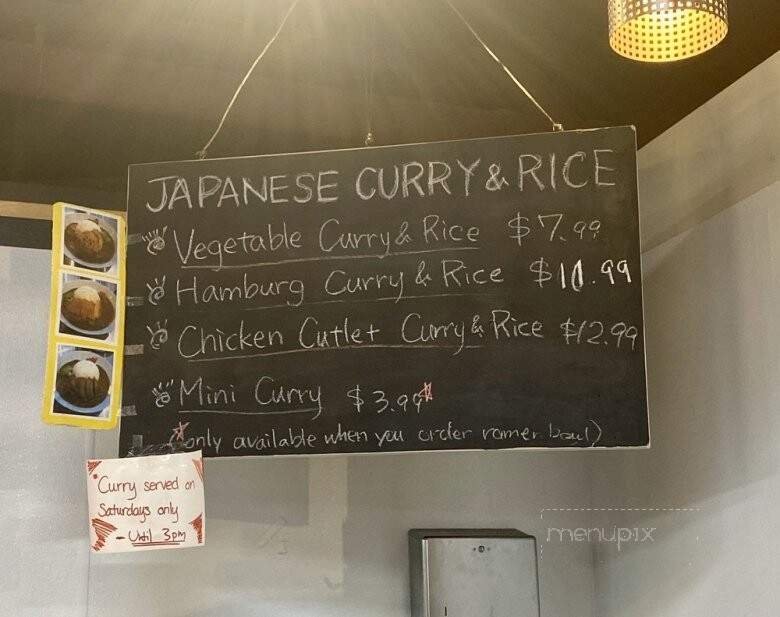 JAPANESE CURRY & RICE
Vegetable Curry & Rice $7.99
Hamburg Curry & Rice $11.99
Chicken Cutlet Curry & Rice $12.99
Mini Curry $3.99*
*(only available when you order ramen bowl)
*Curry served on
Saturdays only
- Until 3pm
menupix